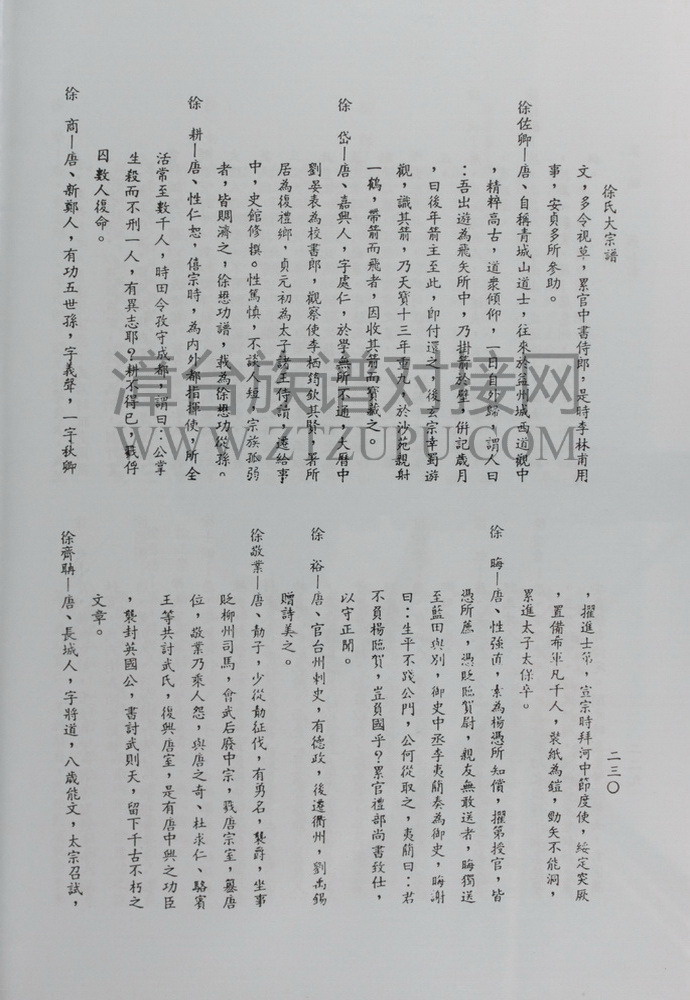 徐氏大宗譜
文，多令視草，累官中書侍郎，是時李林甫用
事，安貞多所參助。
徐佐卿—唐、自稱青城山道士，往來於益州城西道觀中
，精粹高古，道衆傾仰，一日自外歸，謂人曰
：吾出遊為飛矢所中，乃掛箭於壁，併記歲月
，曰後年箭主至此，即付還之，後玄宗幸蜀遊
觀，識其箭，乃天寶十三年重九，於沙苑親射
一鶴，帶箭而飛者，因收其箭而寶藏之。
徐　岱—唐、嘉興人，字處仁，於學無所不通，大曆中
劉晏表為校書郎，觀察使李栖筠欽其賢，署所
居為復禮鄉，貞元初為太子諸王侍讀，遷給事
中，史館修撰。性篤慎，不談人短，宗族孤弱
者，皆賙濟之，徐懋功譜，載為徐懋功從孫。
徐　耕—唐、性仁恕，僖宗時，為內外都指揮使，所全
活常至數千人，時田令孜守成都，謂曰：公掌
生殺而不刑一人，有異志耶？耕不得已，戮俘
囚數人復命。
徐　商—唐、新鄭人，有功五世孫，字義聲，一字秋卿
，擢進士第，宣宗時拜河中節度使，綏定突厥
，置備布軍凡千人，裝紙為鎧，勁矢不能洞，
累進太子太保卒。
徐　晦—唐、性強直，素為楊憑所知償，擢第授官，皆
憑所薦，憑貶臨賀尉，親友無敢送者，晦獨送
至藍田與別，御史中丞李夷簡奏為御史，晦謝
曰：生平不踐公門，公何從取之，夷簡曰：君
不負楊臨賀，豈負國乎？累官禮部尚書致仕，
以守正聞。
徐　裕—唐、官台州刺史，有德政，後遷衢州，劉禹錫
贈詩美之。
徐敬業—唐、勣子，少從勣征伐，有勇名，襲爵，坐事
貶柳州司馬，會武后廢中宗，戮唐宗室，纂唐
位，敬業乃乘人怨，與唐之奇、杜求仁、駱賓
王等共討武氏，復興唐室，是有唐中興之功臣
，襲封英國公，書討武則天，留下千古不朽之
文章。
徐齊聃—唐、長城人，字將道，八歲能文，太宗召試，
二三〇
漳州族谱对接网
WWW.ZTZUPU.COM